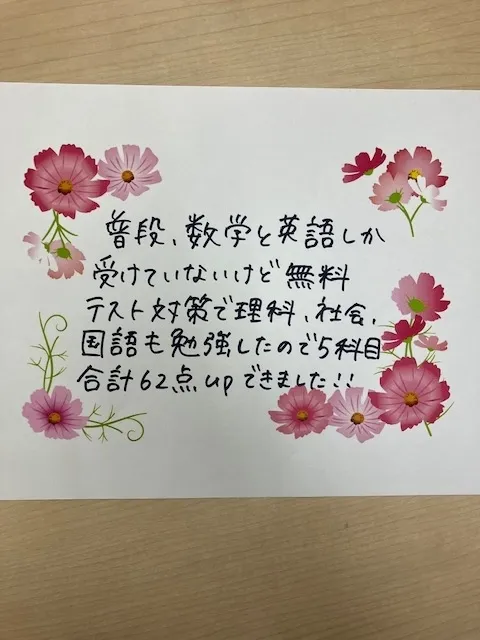 普段、数学と英語しか
受けていないけど無料
テスト対策で理科、社会、
国語も勉強したので5科目
合計62点upできました!!